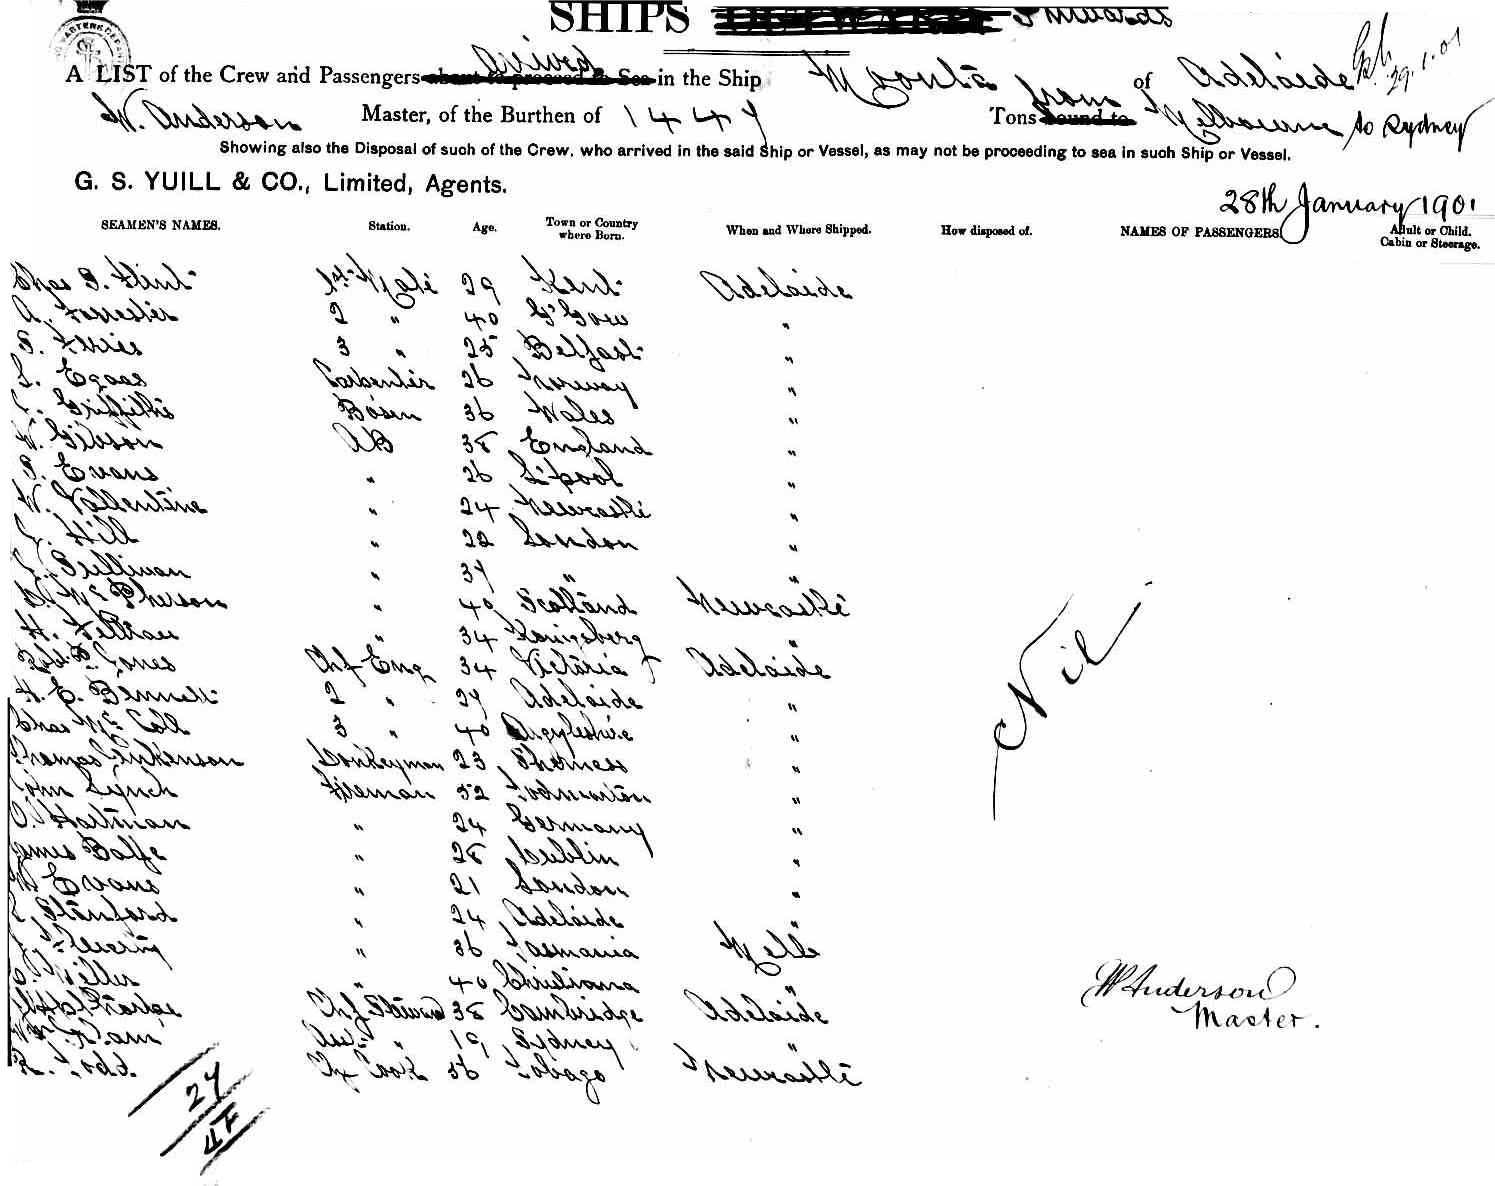 SHIPS Inwards
A LIST of the Crew and Passengers arrived in the Ship Moonta of Adelaide
29.1.01
W. Anderson Master, of the Burthen of 1447 Tons from Melbourne to Sydney
Showing also the Disposal of such of the Crew, who arrived in the said Ship or Vessel, as may not be proceeding to sea in such Ship or Vessel.
G. S. YUILL & CO., Limited, Agents.
28th January 1901
SEAMEN'S NAMES. Station. Age. Town or Country where Born. When and Where Shipped. How disposed of. NAMES OF PASSENGERS Adult or Child. Cabin or Steerage.
Chas S. Flint 1st Mate 29 Kent Adelaide
A. Forrester 2 " 40 G'Gow "
S. Ferries 3 " 25 Belfast "
Carpenter 26 Norway "
J. Griffiths Bosen 36 Wales "
W. Gibson AB 38 England "
S. Evans " 26 L'pool "
W. Vallentine " 24 Newcastle "
J. Hill " 22 London "
J. Sullivan " 37 " "
McPherson " 40 Scotland Newcastle
H. " 34 Konigsberg "
Robt Jones Chf Eng 34 Victoria Adelaide
H. E. Bennett 2 " 27 Adelaide "
Chas McColl 3 " 40 Argyleshire "
Thomas Donkeyman 23 "
John Lynch Fireman 52 "
O. Hartman " 24 Germany "
James Bolfe " 28 Dublin "
W Evans " 21 London "
Stanford " 24 Adelaide "
" 36 Tasmania Melb
Miller " 40 Christiana "
Chf Steward 38 Cambridge Adelaide
19 Sydney "
R. Todd Chf Cook 56 Tobago Newcastle
Nil
27
W Anderson
Master.